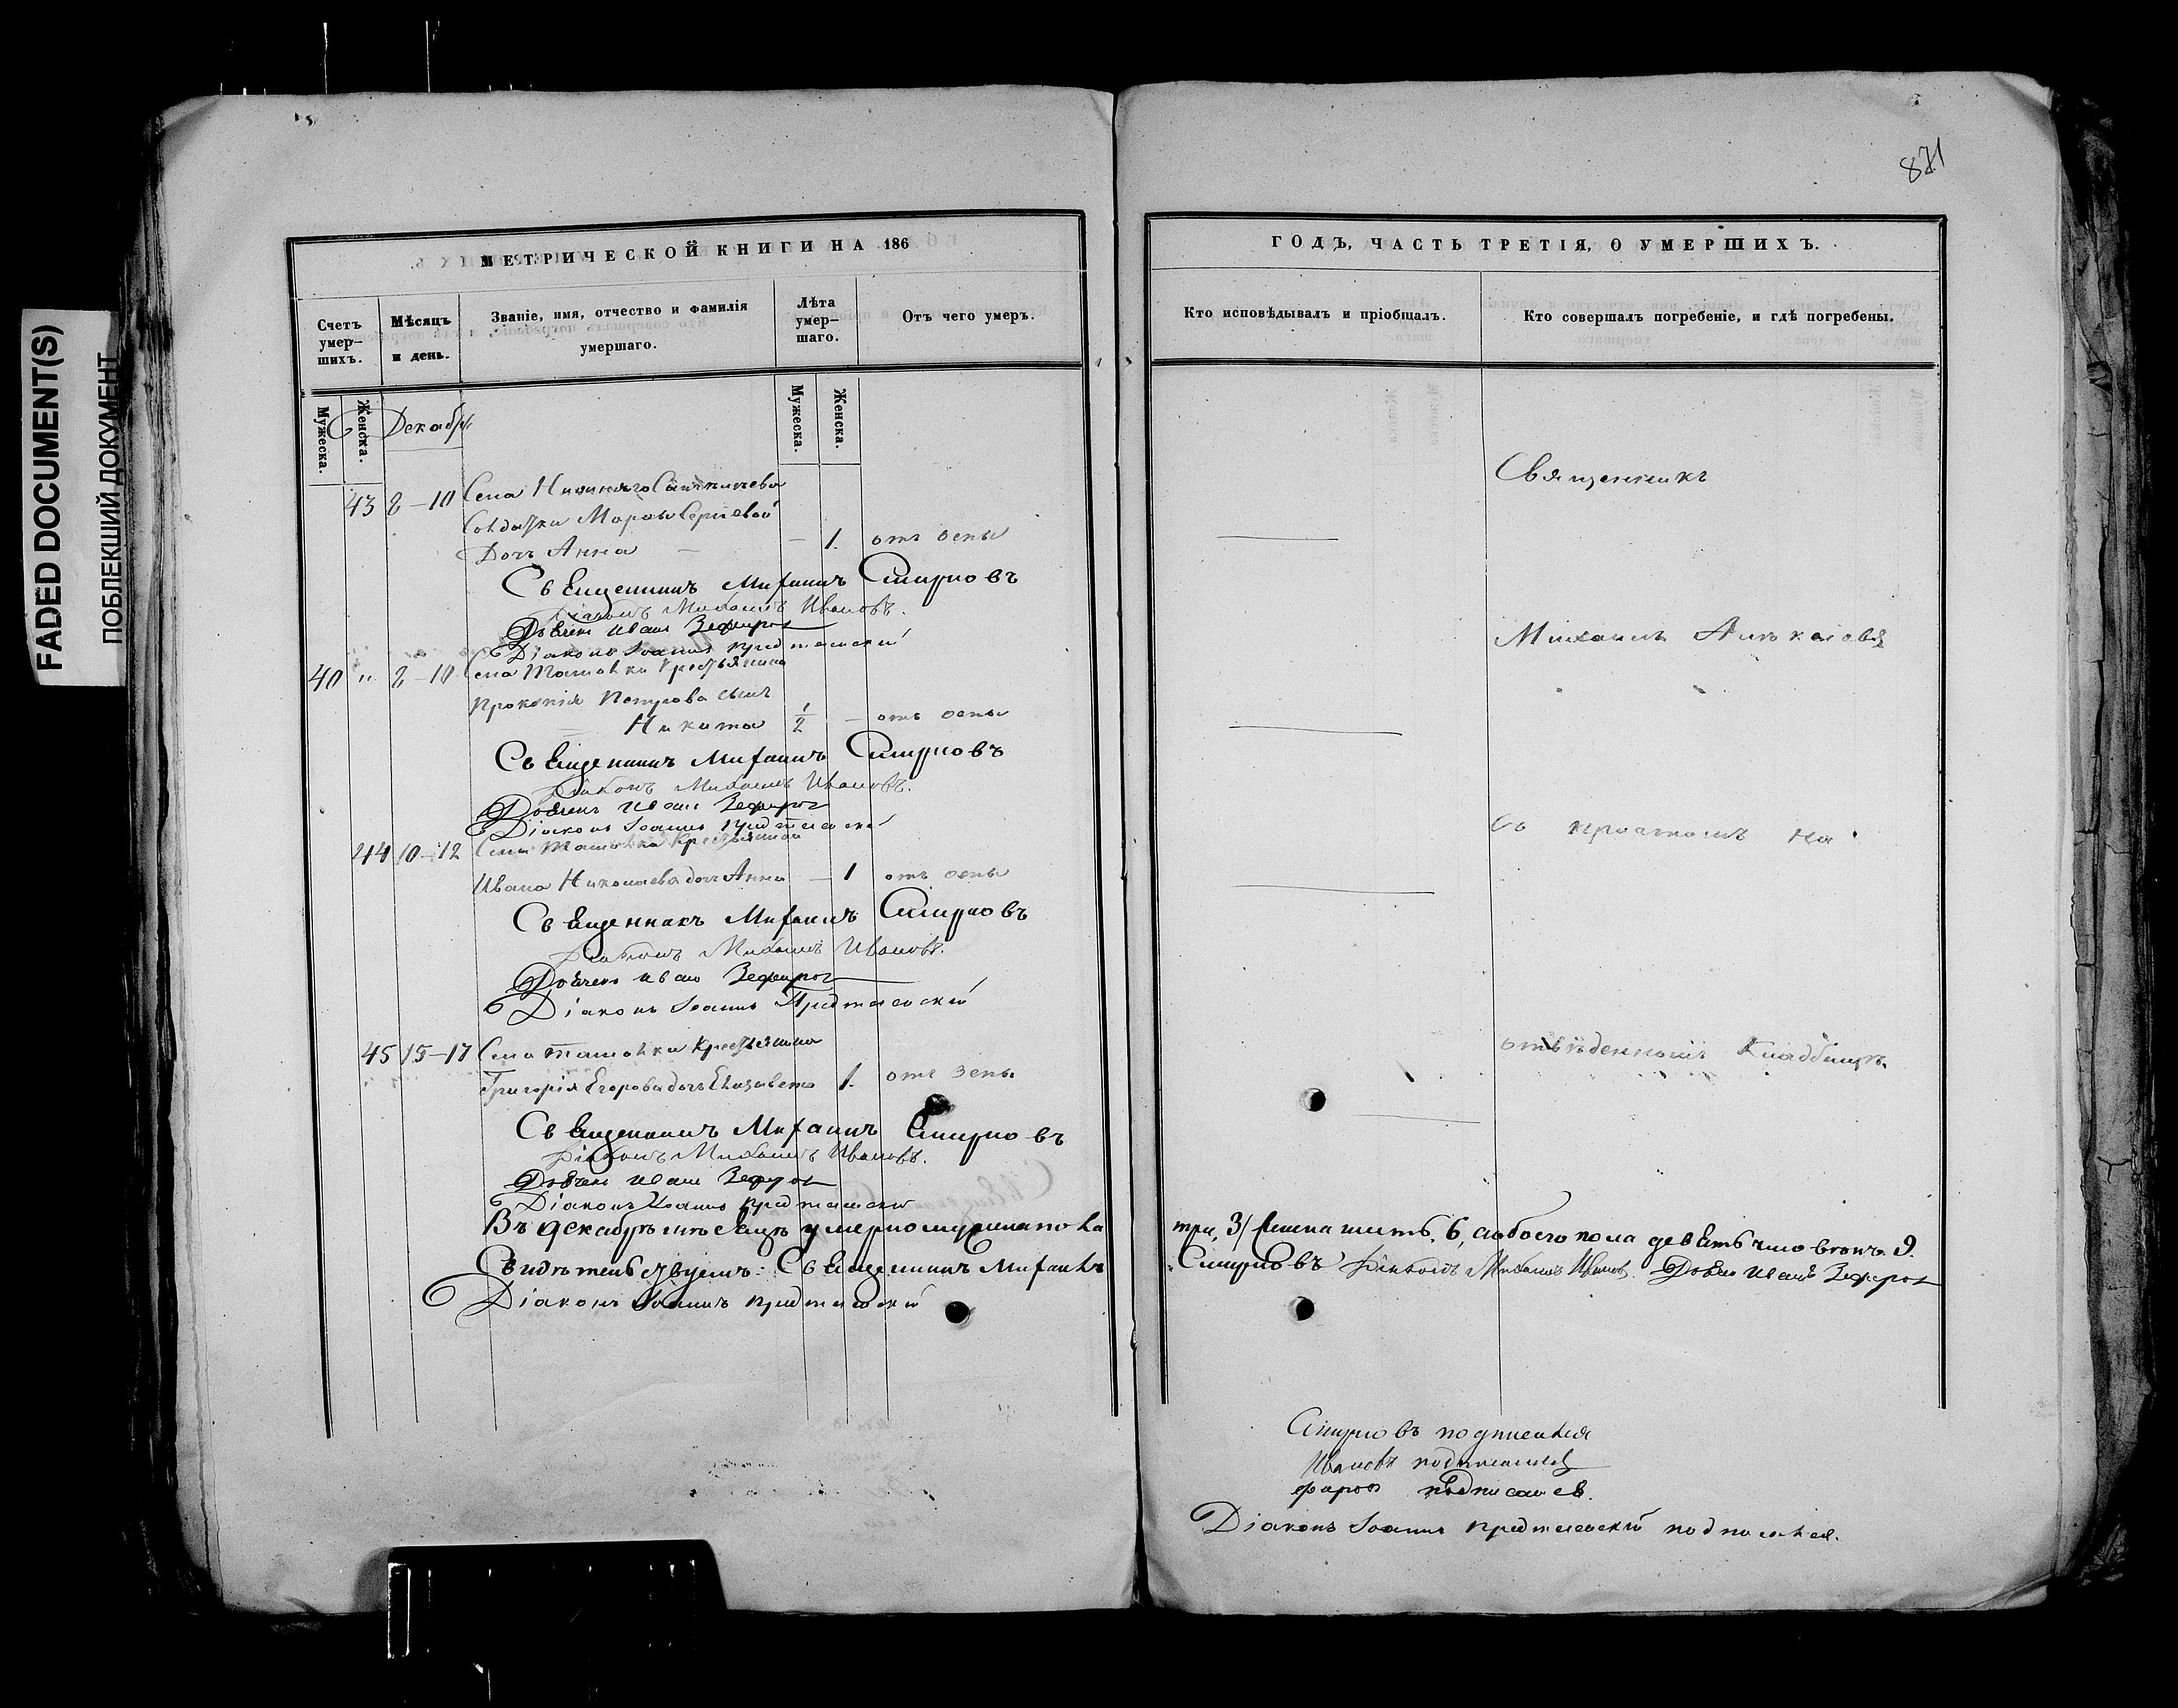 FADED DOCUMENT(S)
ПОБЛЕКШИЙ ДОКУМЕНТ
МЕТРИЧЕСКОЙ КНИГИ НА 186
Счетъ умер-
шихъ.
Мѣсяцъ
и день.
Званіе, имя, отчество и фамилія
умершаго.
Лѣта
умер-
шаго.
Отъ чего умеръ.
Мужеска.
Женска.
Мужеска.
Женска.
Декабрь
43 8-10 Села
Солдатки Сергіевой
Дочь Анна — — 1. отъ оспы
Священникъ Михаилъ Смирновъ
Діаконъ Михаилъ Ивановъ.
Иванъ
Діаконъ Іоаннъ Предтеченскій
40 " 8-10 Села Ташовки крестьянина
Прокопія Петрова сынъ
Никита 1/2 — отъ оспы
Священникъ Михаилъ Смирновъ
Діаконъ Михаилъ Ивановъ.
Иванъ
Діаконъ Іоаннъ Предтеченскій
44 10-12 Села Ташовки Крестьянина
Ивана Николаева дочь Анна — 1 отъ оспы
Священникъ Михаилъ Смирновъ
Діаконъ Михаилъ Ивановъ.
Иванъ
Діаконъ Іоаннъ Предтеченскій
45 15-17 Села Ташовки Крестьянина
Григорія Егорова дочь Елизавета 1. отъ оспы
Священникъ Михаилъ Смирновъ
Діаконъ Михаилъ Ивановъ.
Иванъ
Діаконъ Іоаннъ Предтеченскій
Въ Декабрѣ мѣсяцѣ умерло мужеска пола
Свидѣтельствуемъ: Священникъ Михаилъ
Діаконъ Іоаннъ Предтеченскій
871
ГОДЪ, ЧАСТЬ ТРЕТІЯ, О УМЕРШИХЪ.
Кто исповѣдывалъ и пріобщалъ.
Кто совершалъ погребеніе, и гдѣ погребены.
Священникъ
Михаилъ
съ причтомъ на
отвѣденномъ Кладбищѣ.
три, 3/ женска шесть, 6, а обоего пола девять человѣкъ 9.
Смирновъ Діаконъ Михаилъ Ивановъ Иванъ
Смирновъ подписался
Ивановъ подписался
подписался.
Діаконъ Іоаннъ Предтеченскій подписался.